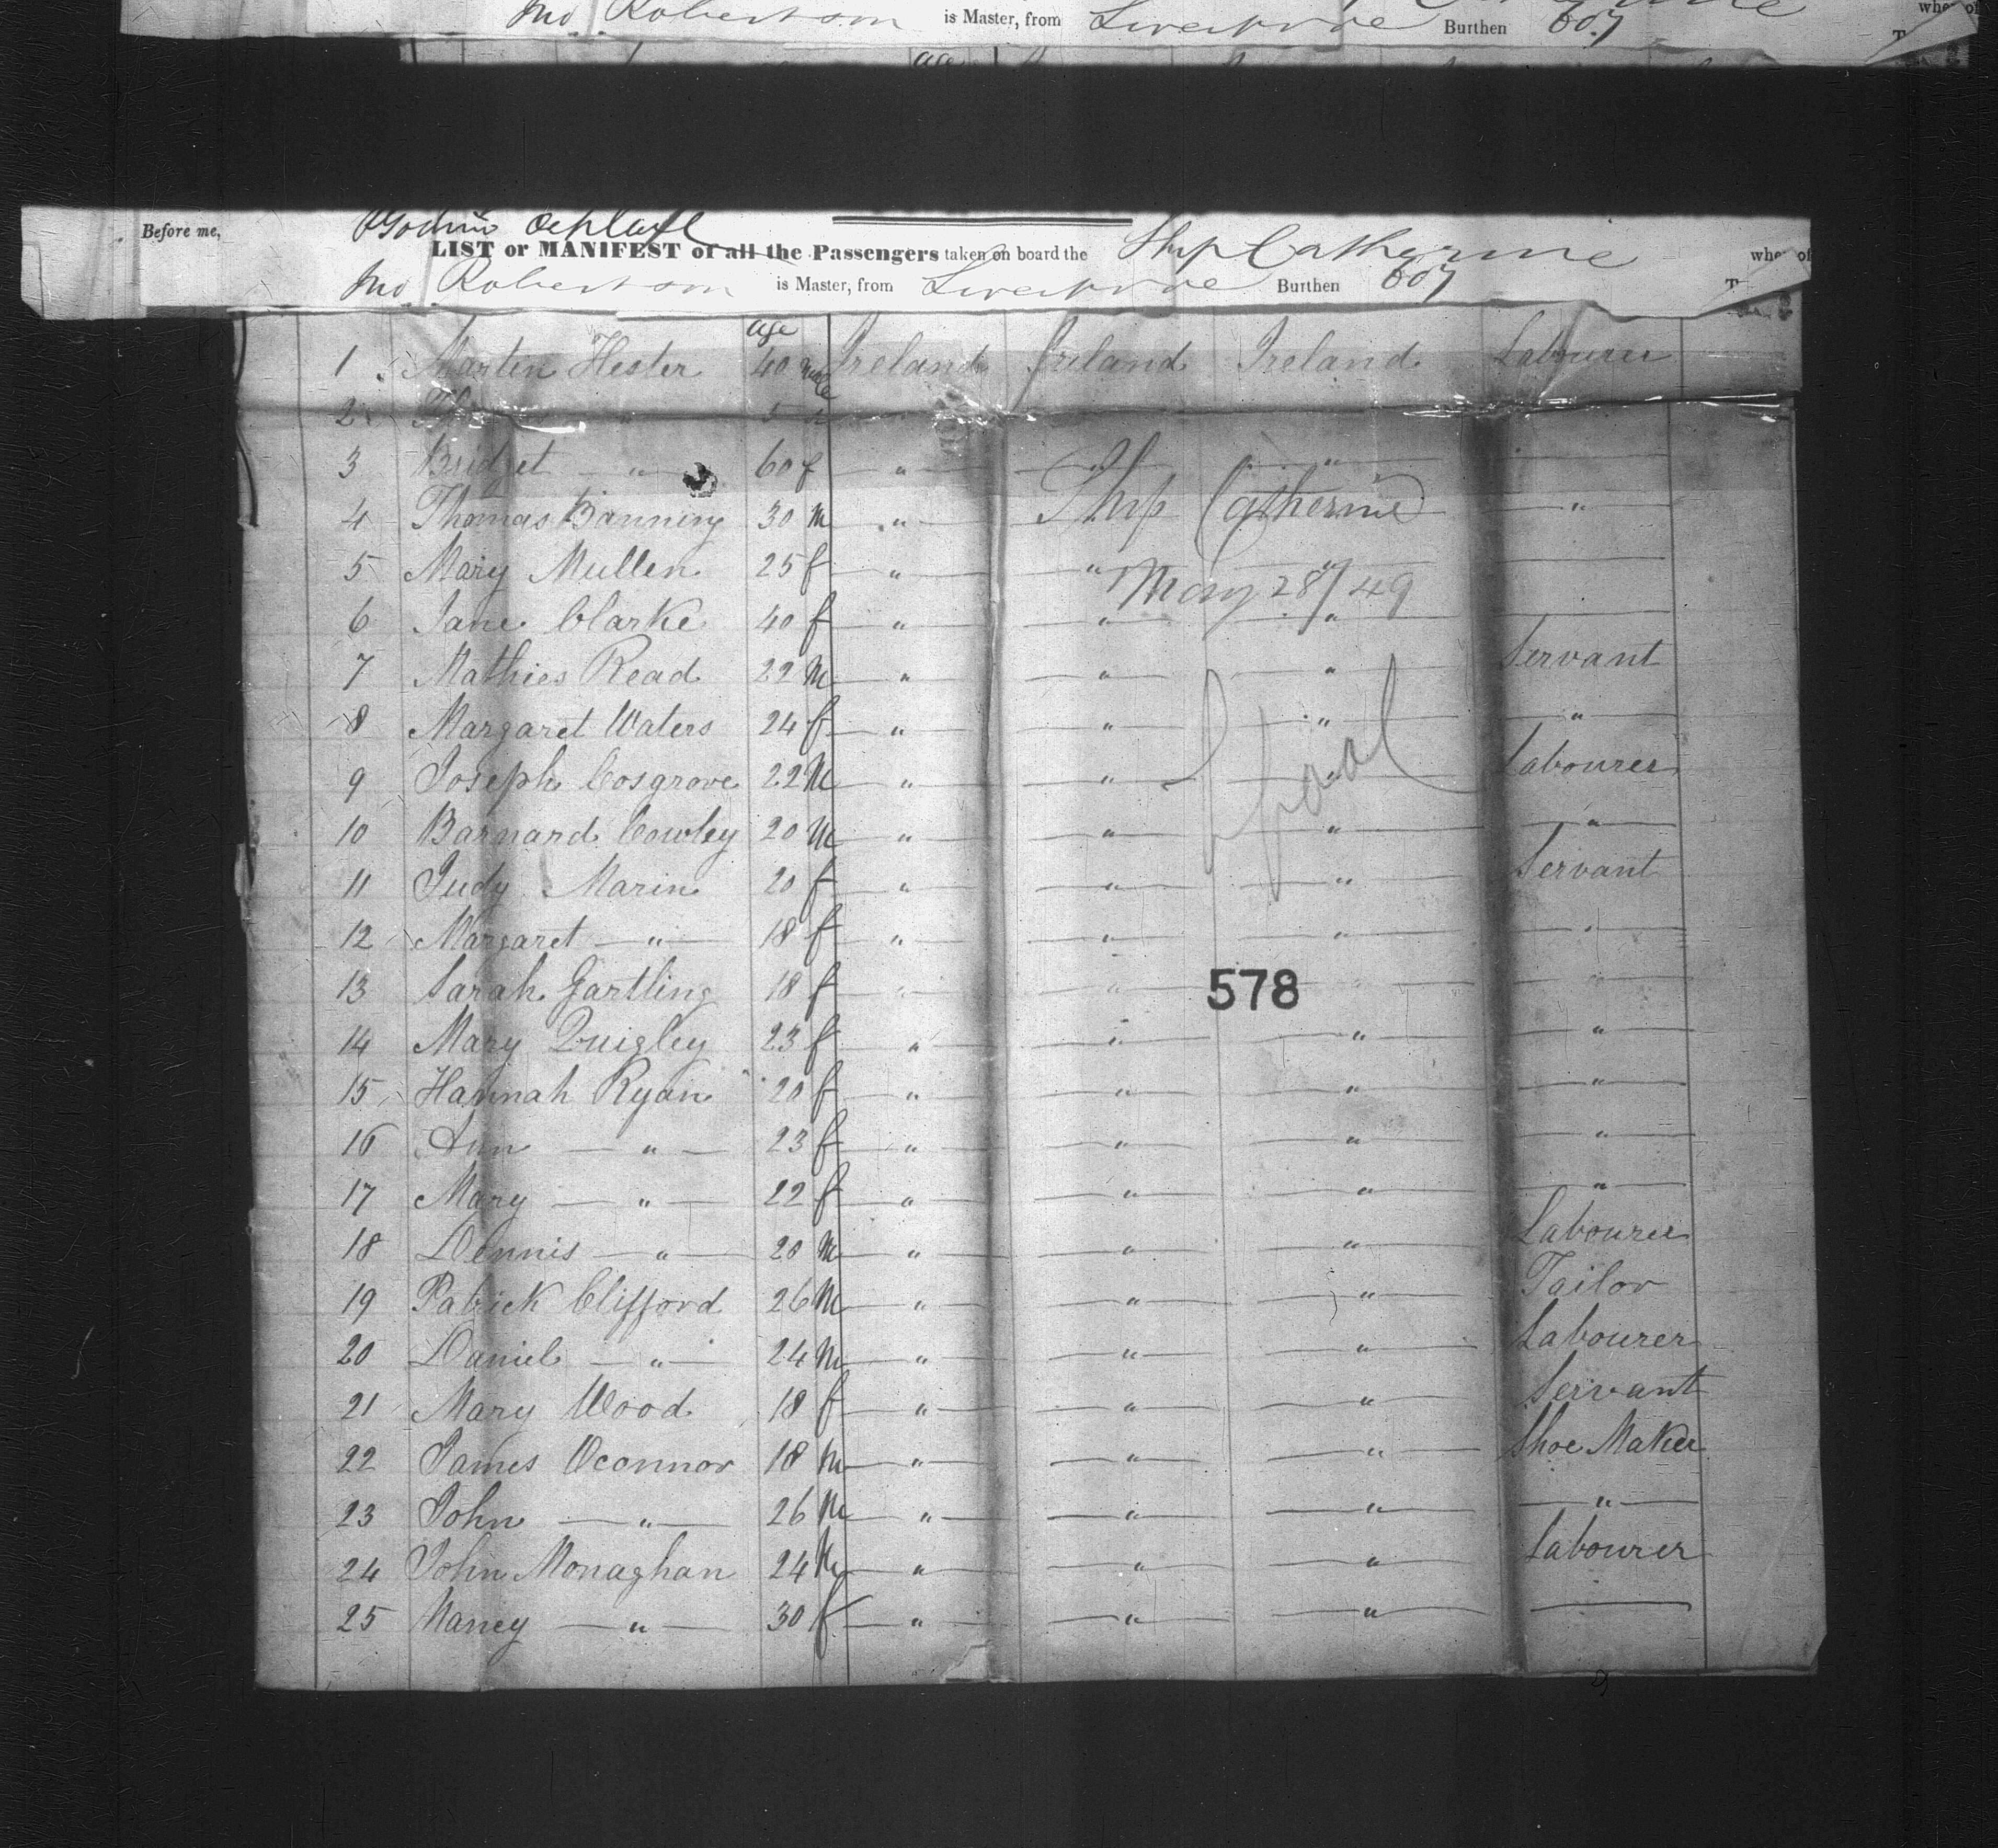 Jno Robertson is Master, from Liverpool Burthen 607
Before me,
LIST or MANIFEST of all the Passengers taken on board the Ship Catherine
Jno Robertson is Master, from Liverpool Burthen 607
age
1 Martin Hester 40 male Ireland Ireland Ireland Labourer
2 " 5
3 Bridget " 60 f " " "
4 Thomas Banning 30 M " Ship Catherine "
5 Mary Mullen 25 f " " "
May 28/49
6 Jane Clarke 40 f " " "
7 Mathies Read 22 M " " " Servant
8 Margaret Waters 24 f " " "
9 Joseph Cosgrove 22 M " " " Labourer
Lpool
10 Barnard Cowley 20 M " " " "
11 Judy Marin 20 f " " " Servant
12 Margaret " 18 f " " " "
13 Sarah Gartling 18 f " " " "
578
14 Mary Quigley 23 f " " " "
15 Hannah Ryan 20 f " " " "
16 Ann " 23 f " " " "
17 Mary " 22 f " " " "
18 Dennis " 20 M " " " Labourer
19 Patrick Clifford 26 M " " " Tailor
20 Daniel " 24 M " " " Labourer
21 Mary Wood 18 f " " " Servant
22 James Oconnor 18 M " " " Shoe Maker
23 John " 26 M " " " "
24 John Monaghan 24 M " " " Labourer
25 Nancy " 30 f " " "